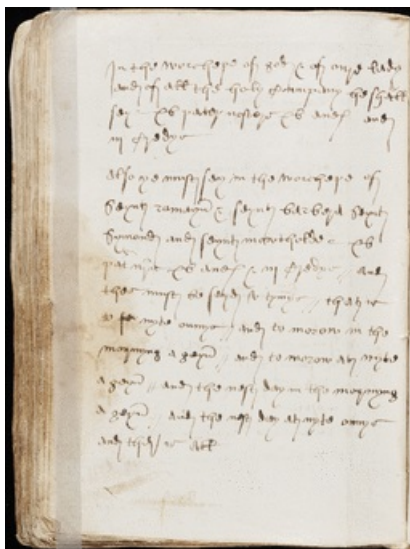 In the worchepe of god & of oure lady
and of all the holy company he shall
sey xv pater nosters xv aves and
iii credys
Also ye must sey in the worchepe of
Seynt & seynt barbera Seynt
and seynt xv
pat nr xv aves & iii credys and
thes must be seyd v tymys that is
to nyte onnys and to morow in the
mornyng a geyn and to morow at nyte
a geyn and the next day in the mornyng
a geyn and the next day at nyte onnys
and that is all